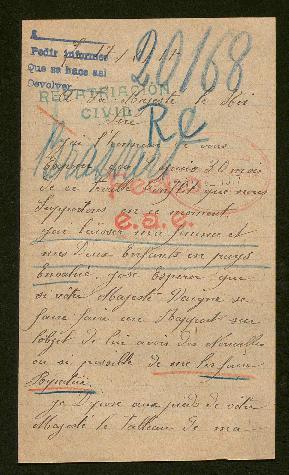 A
Pedir informes
Que se hace asi
Devolver
17-1-17
20168
REPATRIACION
CIVIL
A Sa Majesté le Roi
Sire
RC
J'ai l'honneur de vous
Exposer que Depuis 30 mois
de ce terrible que nous
Supportons en ce moment
e.a.e.
que laisser ma femme et
mes deux Enfants en pays
Envahie, j'ose Esperer que
si votre Majesté Daigne se
faire faire un Rapport sur
l'objet de lui avoir des Nouvelles
ou si possible de me les faire
Rapatrié.
je Dépose aux pieds de votre
Majesté le tableau de ma-